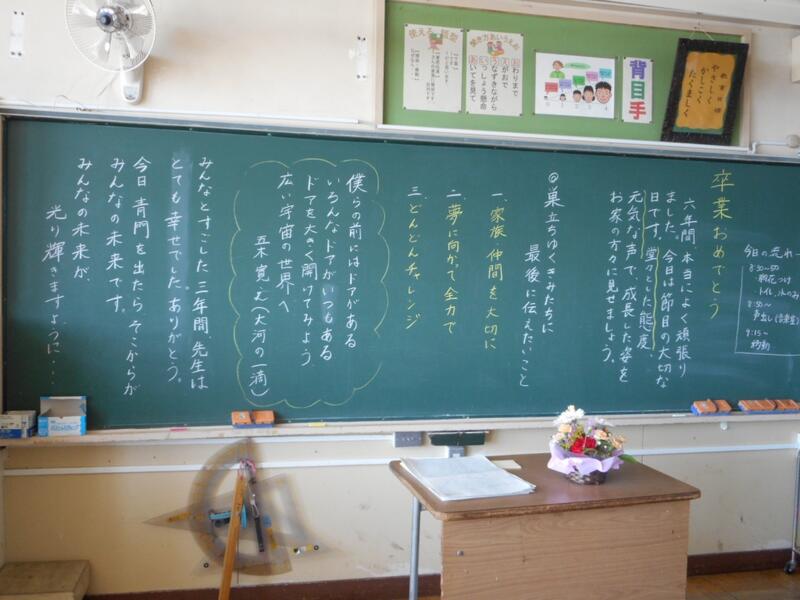 教育目標
やさしく
かしこく
たくましく
背
目
手
聞き方あいうえお
あいてを見て
いっしょう懸命
うなずきながら
えがおで
おわりまで
卒業おめでとう
六年間、本当によく頑張り
ました。今日は節目の大切な
日です。堂々とした態度、
元気な声で、成長した姿を
お家の方々に見せましょう。
◎巣立ちゆくきみたちに
最後に伝えたいこと
一、家族・仲間を大切に
二、夢に向かって全力で
三、どんどんチャレンジ
僕らの前にはドアがある
いろんなドアがいつもある
ドアを大きく開けてみよう
広い宇宙の世界へ
五木寛之(大河の一滴)
みんなとすごした三年間、先生は
とても幸せでした。ありがとう。
今日 青門を出たら そこからが
みんなの未来です。
みんなの未来が、
光り輝きますように・・・
今日の流れ
8:30~50
トイレ、水のみ
8:50~
声出し(音楽室)
9:15~